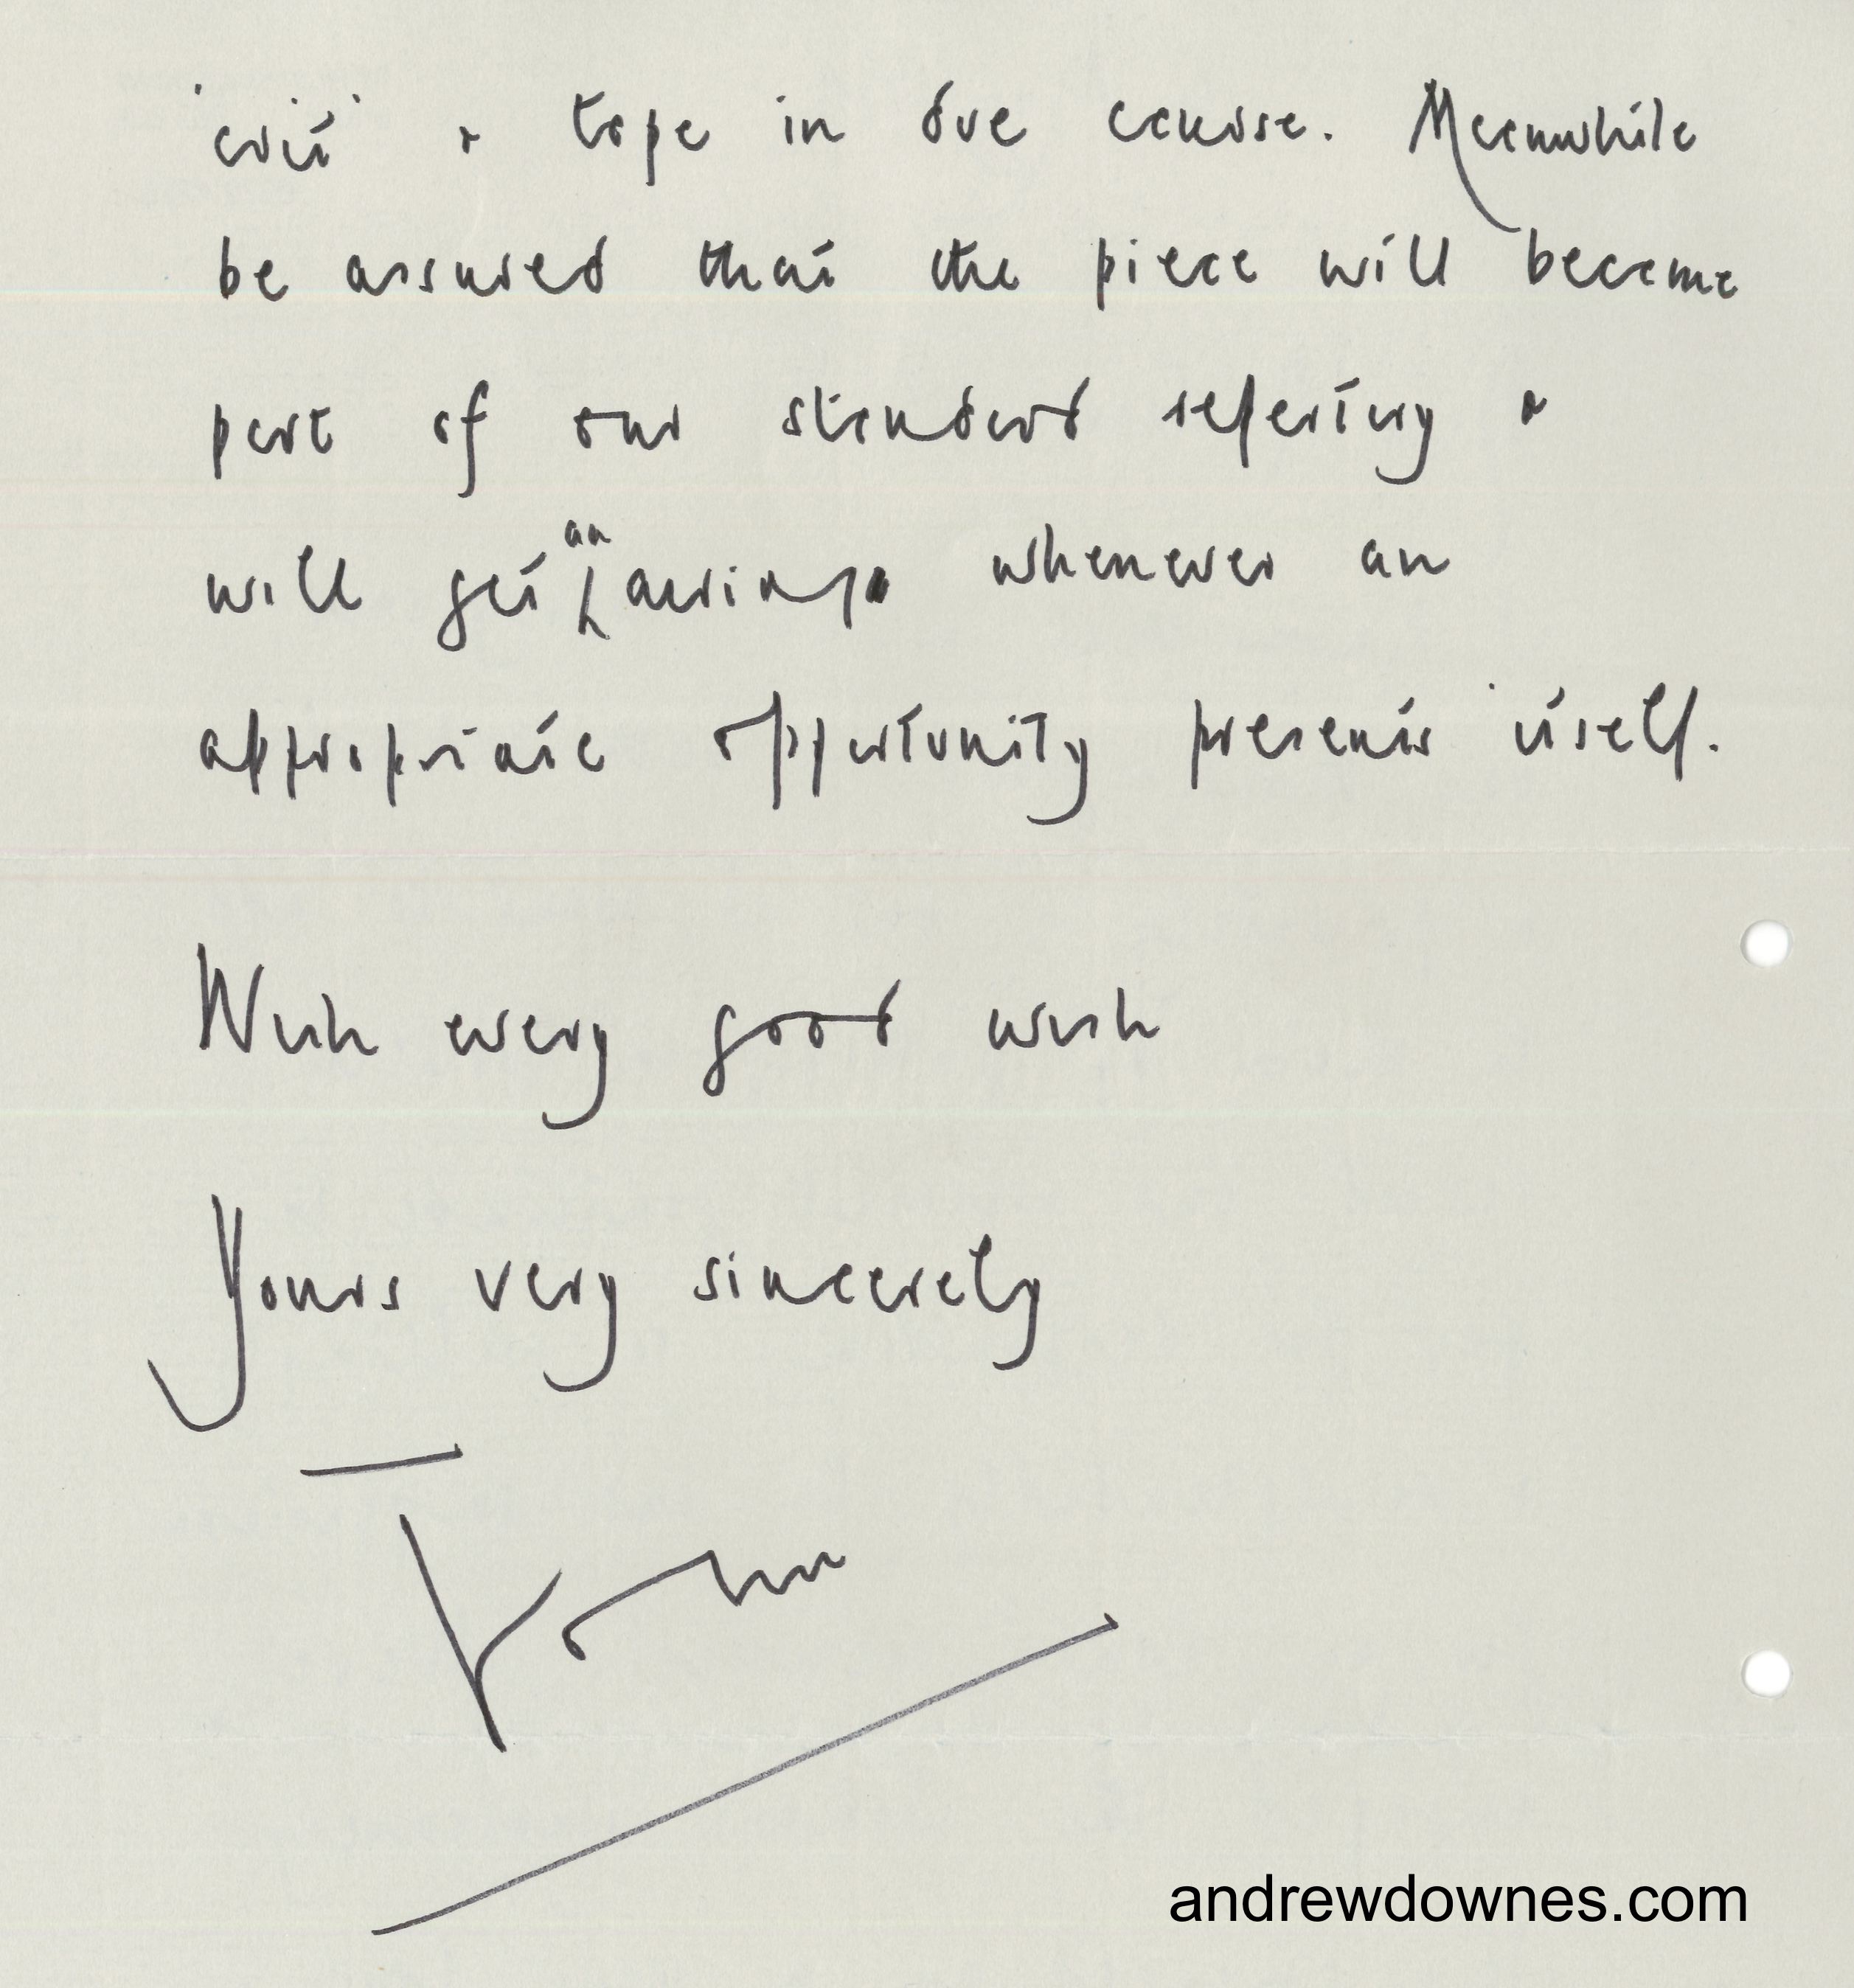 'crit' & tape in due course. Meanwhile
be assured that the piece will become
part of our standard repertory &
will get an airing whenever an
appropriate opportunity presents itself.
With every good wish
Yours very sincerely
andrewdownes.com